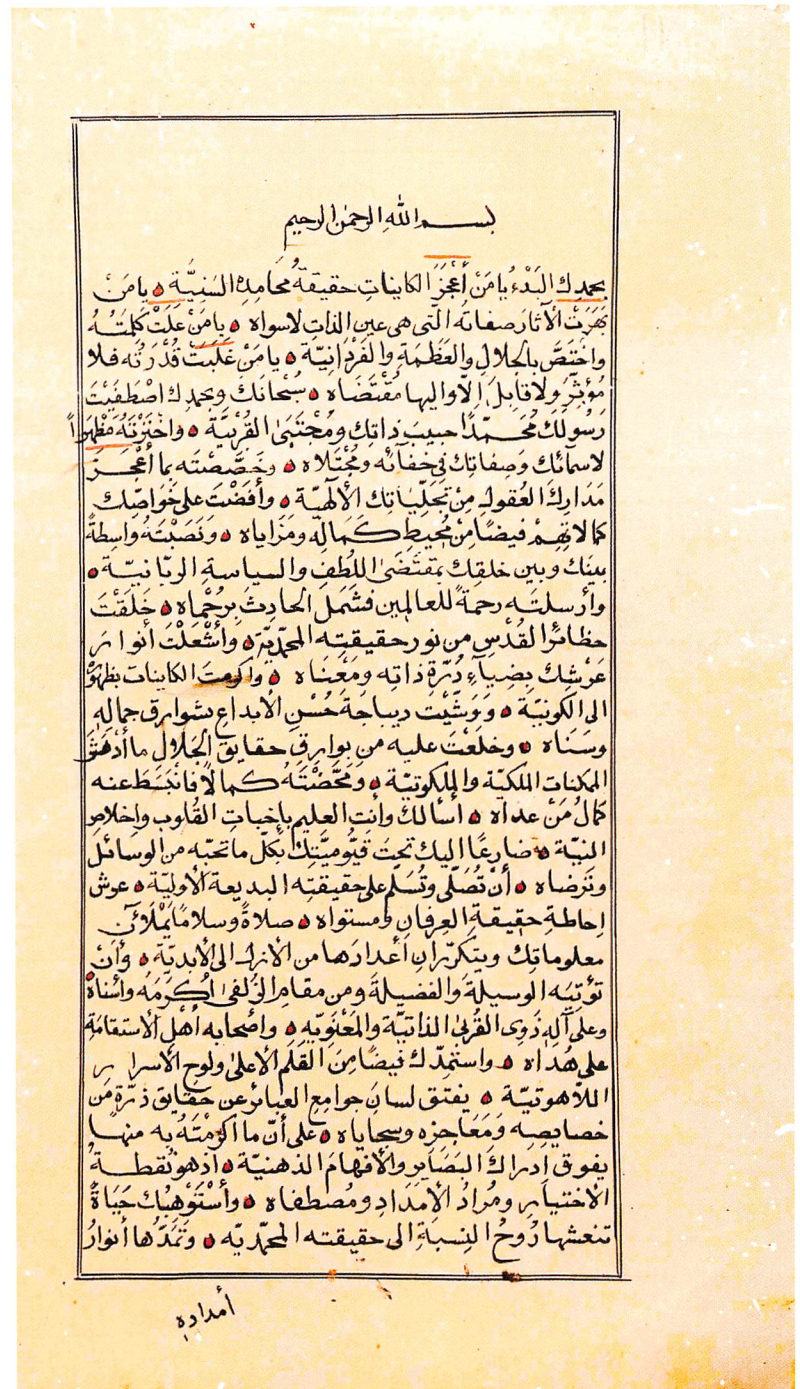 بسم الله الرحمن الرحيم
بحمدك البَدْءُ يا مَنْ أَعْجَزَ الكاينات حقيقةُ محامدِه السَّنِيَّةِ ۰ يا مَنْ
بَهَرَتْ الآثارَ صفاتُه الَّتى هى عين الذات لا سواه ۰ يا مَنْ عَلَتْ كلمتُهُ
واختَصَّ بالجلال والعَظَمَةِ والفَرْدانِيّة ۰ يا مَنْ غَلَبَتْ قُدْرَتُه فلا
مُؤَثِّرَ ولا قابِلَ إلّا واليها مُقْتَضَاه ۰ سُبْحانَك وبحمدك اصْطَفَيْتَ
رَسُولَكَ مُحَمَّدًا حبيبَ ذاتِكَ ومُجْتَبَى القُرْبِيَّة ۰ واخْتَرْتَهُ مَظْهَرًا
لاسمائك وَصِفاتِك فى خفائه ومُجْتَلاه ۰ وخَصَّصْتَه بما أَعْجَزَ
مَدَارِكَ العُقول مِنْ تجَلِّيَاتِك الآلٰهيّة ۰ وأَفَضْتَ على خَوَاصِّك
كمالاتِهِمْ فيضًا مِنْ مُحيطِ كَمالِهِ ومَزَاياه ۰ ونَصَبْتَهُ واسِطةً
بينك وبين خلقك بمقتَضَى اللُّطفِ والسياسةِ الربّانيّة ۰
وأرسلتَه رحمةً للعالمين فشَمِل الحادِثَ بِرُحْماه ۰ خَلَقْتَ
حظائرَ القُدْسِ من نورِ حقيقتِه المحمّديّة ۰ وأَشْعَلْتَ أنوارَ
عَرْشِك بِضِيآءِ دُرَّةِ ذاتِه ومَعْناه ۰ واكرمتَ الكاينات بظهوره
الى الكونيّة ۰ وَوَشَّيْتَ ديباجةَ حُسْنِ الأبداعِ بشوارقِ جمالِه
وسَناه ۰ وخلعْتَ عليه من بوارِقِ حقايق الجَلالِ ما أَدْهَشَ
الممكنات الملكيّة والملكوتيّة ۰ ومَحَّضْتَهُ كمالًا فانْبَسَطَ عنه
كمالُ مَنْ عداه ۰ أسألك وأنت العليم بإخباتِ القُلوبِ وإخلاصِ
النيّة ۰ ضارِعًا اليك تحت قيُّوميَّتِكَ بكلِّ ما تحبّه من الوسائل
وتَرضاه ۰ أنْ تُصَلّى وتُسَلِّم على حقيقتِه البديعةِ الأوليّة ۰ عرش
إحاطةِ حقيقةِ العِرفانِ ومستواه ۰ صلاةً وسلامًا يَمْلَآنِ
معلوماتِك ويتكرّرانِ أعدادَها من الأزل الى الأبديّة ۰ وأنْ
تؤتِيَه الوسيلةَ والفضيلةَ ومن مقامِ الزُلفى أكْرَمَه وأسْناهُ ۰
وعلى آلِه ذَوِى القُربى الذاتيّةِ والمَعْنَوِيّه ۰ واصحابِه أهْلِ الأستقامَةِ
على هُدَاه ۰ واستمِدّك فيضًا مِنَ القَلَمِ الأعلى ولوحِ الأسرارِ
اللاهوتيّة ۰ يفتق لسانَ جوامِعِ العبائر عن حَقايق ذَرّةٍ من
خصايصِه ومَعَاجِزِه وسجاياه ۰ على أنّ ما اكرمْتَهُ به منها
يفوق إدراكَ البَصَاير والأفهامَ الذهنيّة ۰ اذ هو نُقطةُ
الاختيارِ ومُرادُ الأَمْدَادِ ومُصطفاه ۰ وأسْتَوْهِبُك حَيَاةً
تنعش بها رُوحُ النِسبَةِ الى حقيقته المحمّديّه ۰ وتَمُدّها أنوارُ
أمدادِه